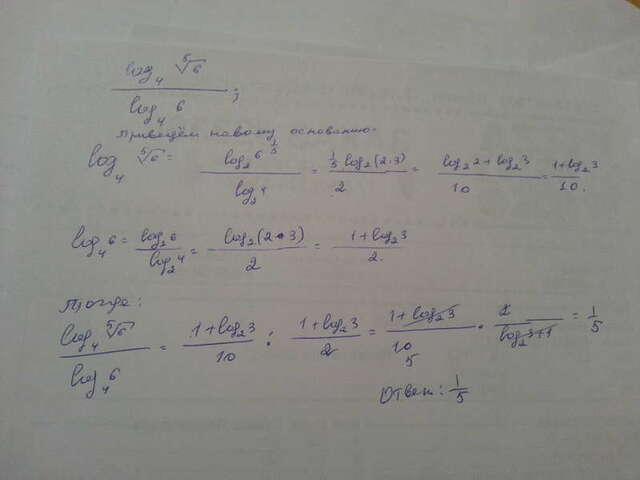 log₄ ⁵√6 / log₄ 6 ;
Приведём новому основанию.
log₄ ⁵√6 = log₂ 6^(1/5) / log₂ 4 = 1/5 log₂(2·3) / 2 = log₂ 2 + log₂ 3 / 10 = 1 + log₂ 3 / 10.
log₄ 6 = log₂ 6 / log₂ 4 = log₂(2·3) / 2 = 1 + log₂ 3 / 2.
Тогда:
log₄ ⁵√6 / log₄ 6 = 1 + log₂ 3 / 10 : 1 + log₂ 3 / 2 = 1 + log₂ 3 / 10 5 · 2 / log₂ 3 + 1 = 1/5
Ответ: 1/5